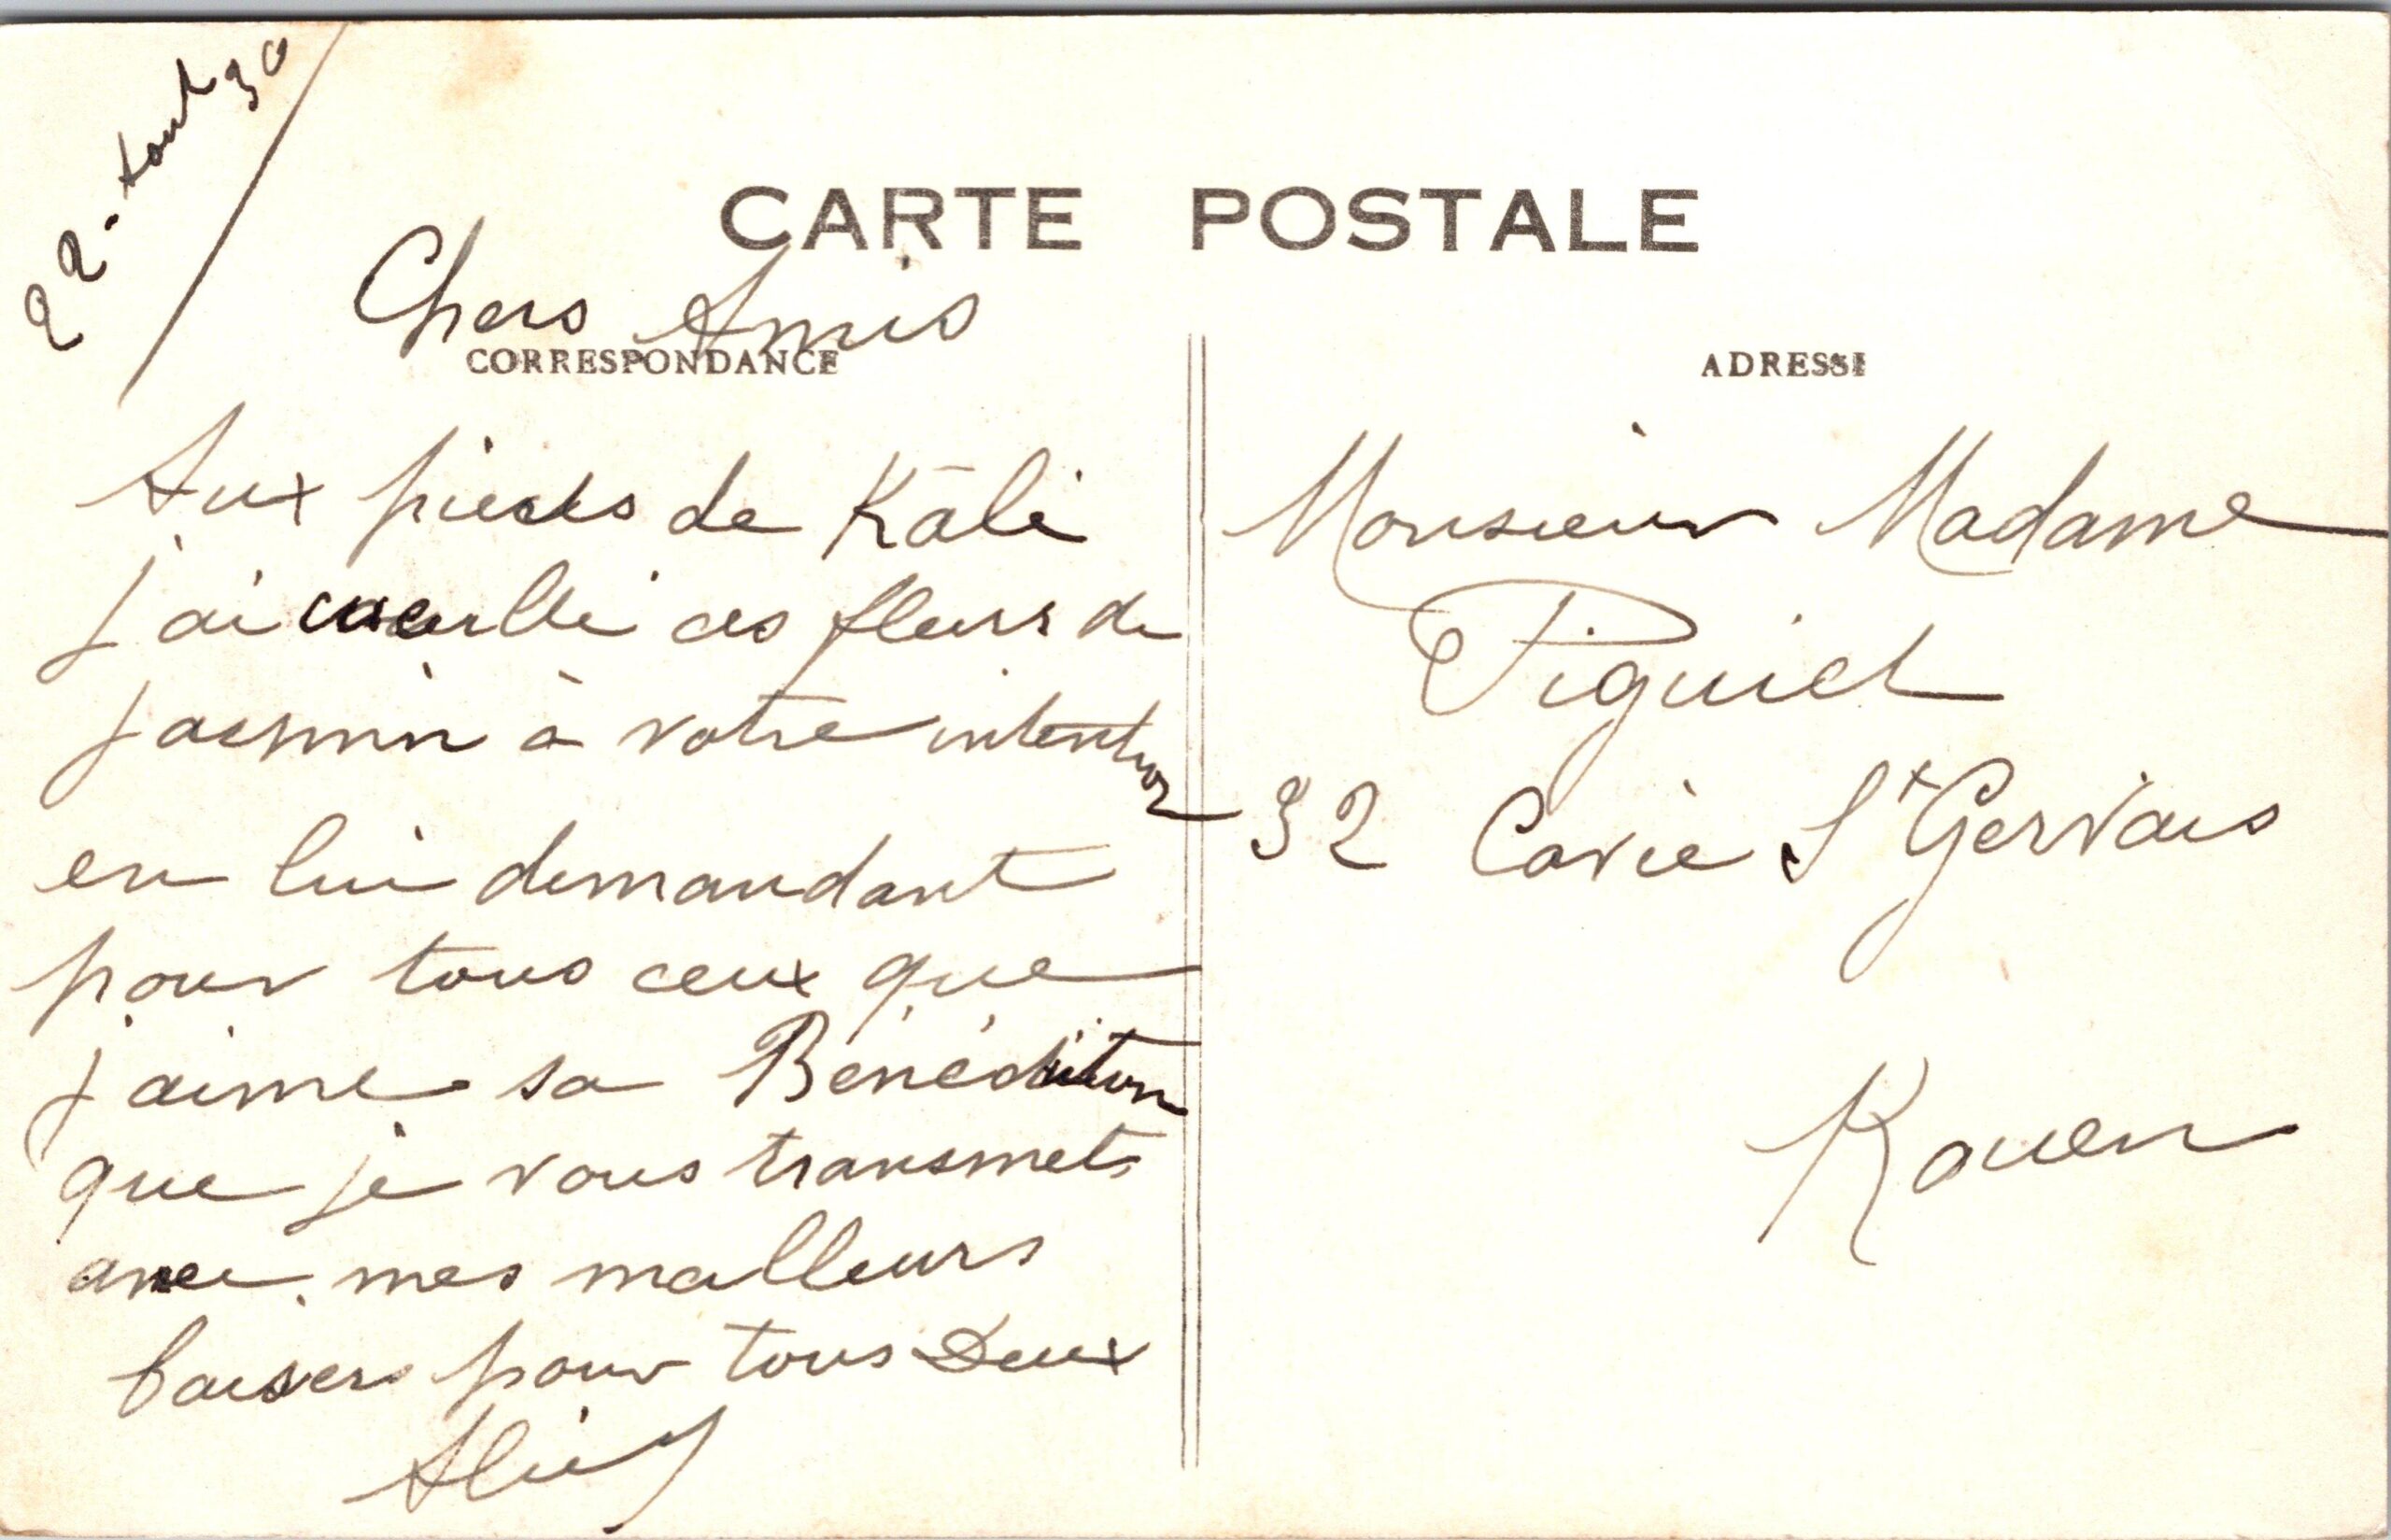 22. Aout 30
CARTE POSTALE
Chers Amis
CORRESPONDANCE
Aux pieds de Kāli
j'ai cueilli ces fleurs de
jasmin à votre intention
en lui demandant
pour tous ceux que
j'aime sa Bénédiction
que je vous transmets
avec mes meilleurs
baisers pour tous Deux
ADRESSE
Monsieur Madame
Piguiet
32 Cavée St Gervais
Rouen